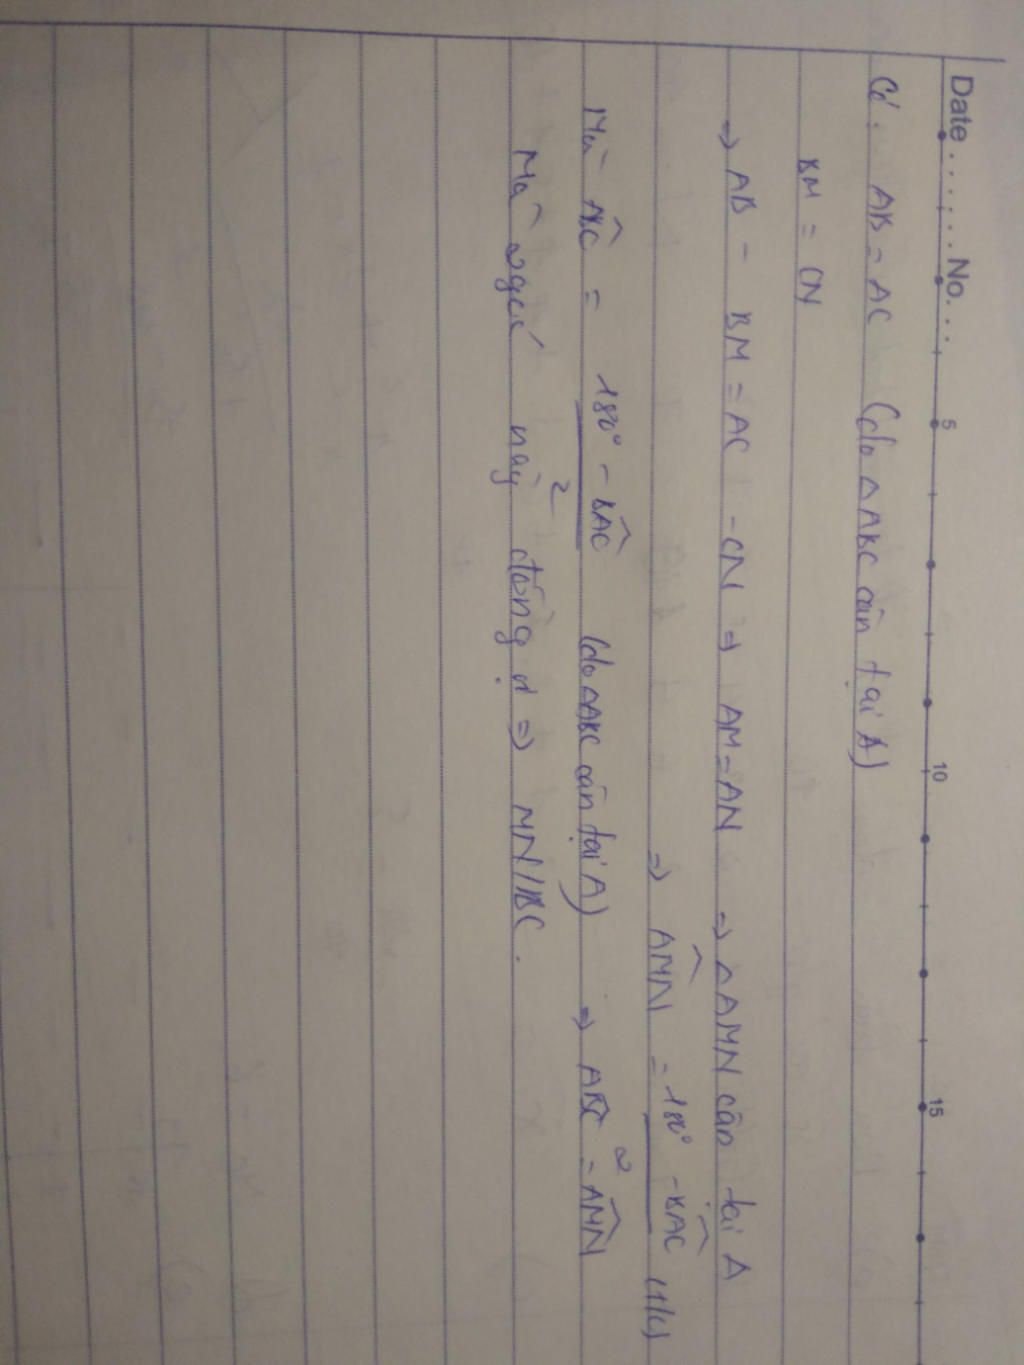 Date.......No....
5 10 15
Có: AB = AC (do △ABC cân tại A)
BM = CN
⇒ AB - BM = AC - CN ⇒ AM = AN ⇒ △AMN cân tại A
⇒ \widehat{AMN} = \frac{180° - \widehat{BAC}}{2} (t/c)
Mà \widehat{ABC} = \frac{180° - \widehat{BAC}}{2} (do △ABC cân tại A) ⇒ \widehat{ABC} = \widehat{AMN}
Mà 2 góc này đồng vị ⇒ MN//BC.